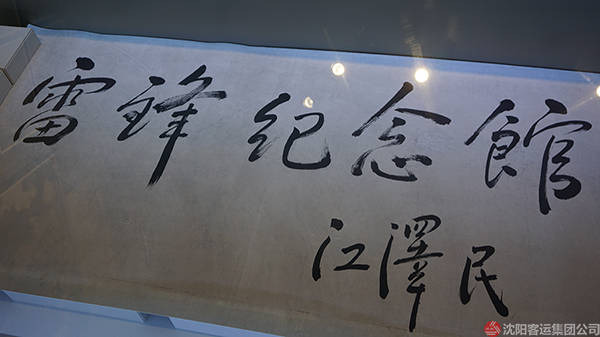 雷锋纪念館
江澤民
沈阳客运集团公司